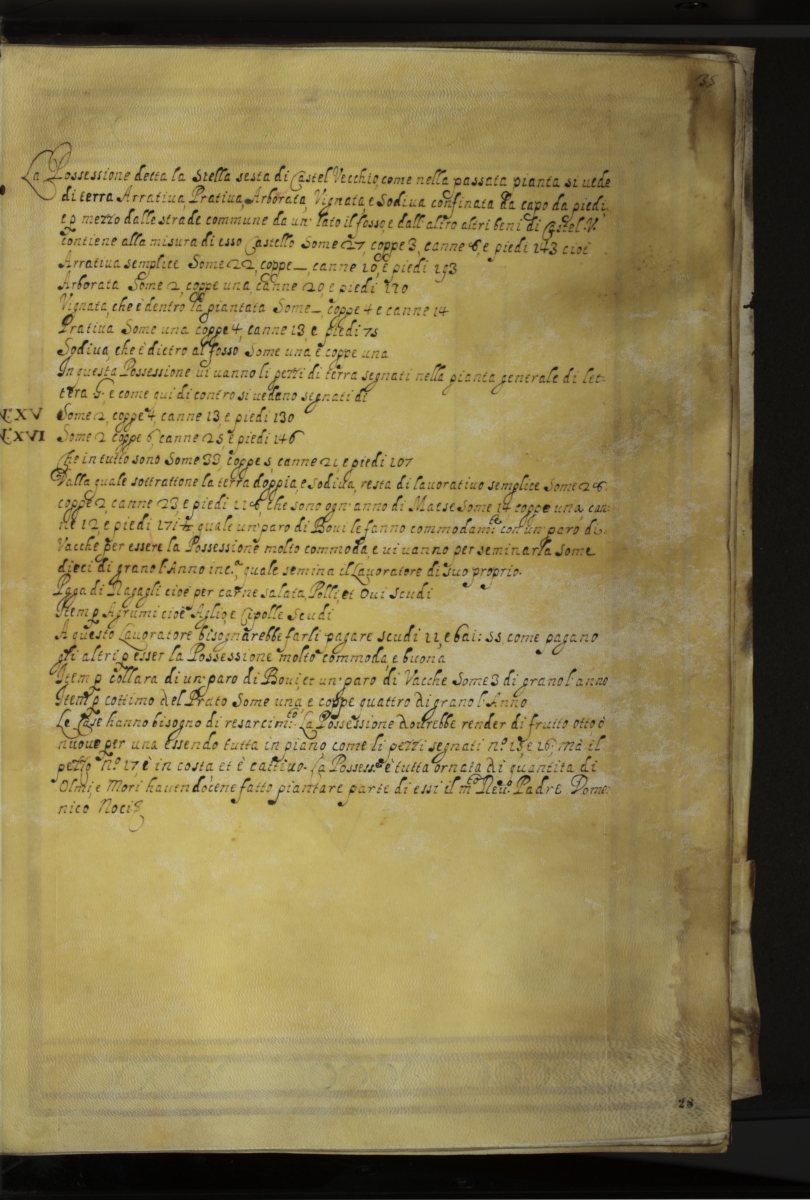 35
La Possessione detta la Stella sesta di Castel Vecchio, come nella passata pianta si uede
di terra Arratiua, Pratiua, Arborata, Vignata, e Sodiua confinata da capo da piedi,
e p mezzo dalle strade commune da un' lato il fosso, e dall'altro altri beni di Castel V.º
contiene alla misura di esso Castello Some 27, coppe 3, canne 6, e piedi 143 cioè
Arratiua semplice Some 22, coppe —, canne 10, e piedi 193
Arborata Some 2, coppe una, canne 20, e piedi 110
Vignata, che è dentro la piantata Some —, coppe 4 e canne 14
Pratiua Some una coppe 4, canne 13, e piedi 75
Sodiua, che è dietro al fosso Some una e coppe una
In questa Possessione ui uanno li pezzi di terra segnati nella pianta generale di let-
tera G. e come qui di contro si uedano segnati di
N.º XV Some 2, coppe 4, canne 13 e piedi 130
N.º XVI Some 2 coppe 6 canne 25 e piedi 146
Che in tutto sono Some 33, coppe 5, canne 21, e piedi 107
Dalla quale sottrattone la terra doppia, e Sodiua, resta di lauoratiuo semplice Some 28
coppe 2, canne 23, e piedi 118, che sono ogn'anno di Maese Some 14 coppe una can-
ne 12, e piedi 171½ quale un' paro di Boui le fanno commodam.te con un' paro di
Vacche per essere la Possessione molto commoda, e ui uanno per seminarla Some
dieci di grano l'Anno inc.a quale semina il Lauoratore di suo proprio.
Paga di Regagli cioè per carne salata, Polli, et Oui Scudi
Item p Agrumi cioè Aglio, e Cipolle Scudi
A questo Lauoratore bisognarebbe farli pagare scudi 11, e bai: 55 come pagano
gli altri p esser la Possessione molto commoda, e buona
Item p collara di un' paro di Boui, et un' paro di Vacche Some 3 di grano l'anno
Item p cottimo del Prato Some una e coppe quattro di grano l'Anno
Le Case hanno bisogno di resarcim.to La Possessione dourebbe render di frutto otto è
nuoue per una essendo tutta in piano come li pezzi segnati n.º 15, e 16, mà il
pezzo n.º 17 è in costa, et è cattiuo. La Possess.e è tutta ornata di quantità di
Olmi, e Mori hauendocene fatto piantare parte di essi il m.to Reu.do Padre Dome-
nico Noci
28